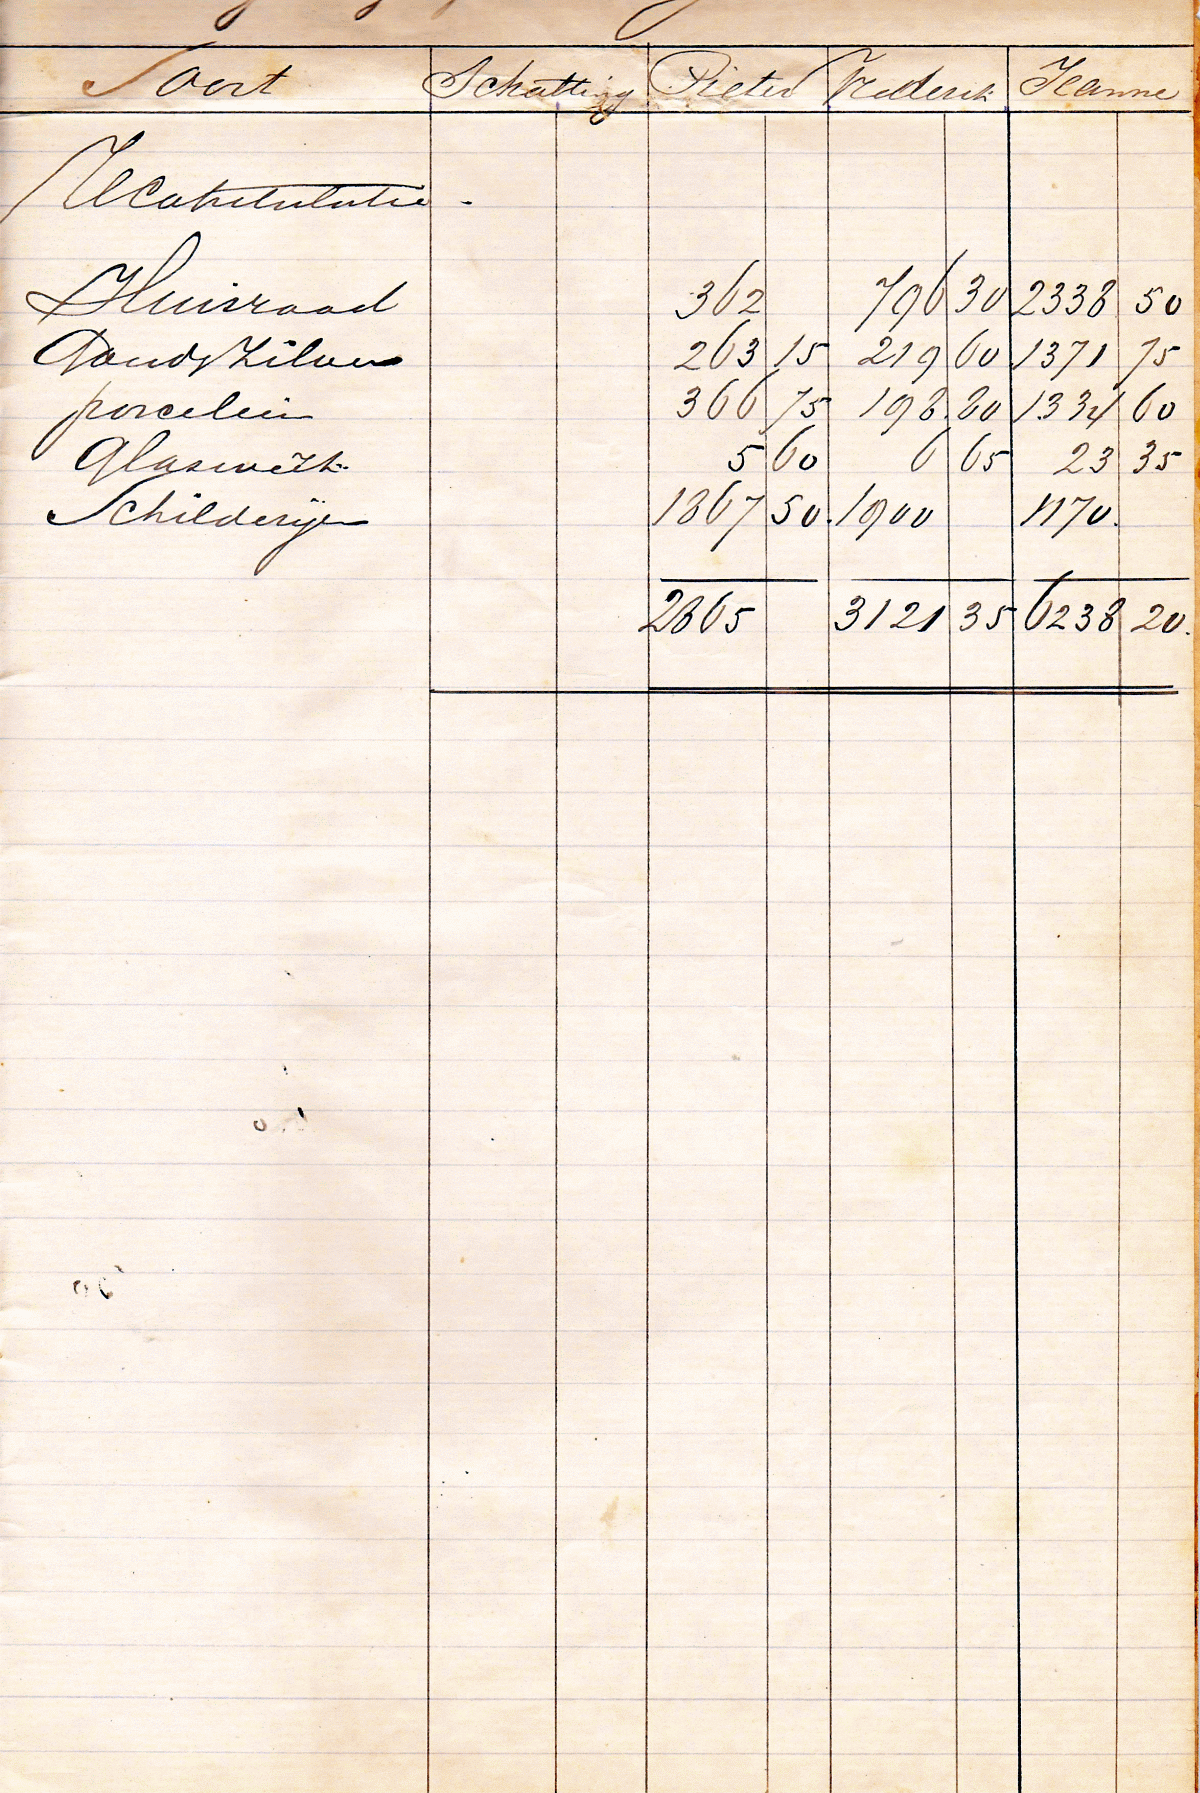 Soort Schatting Pieter Frederik Jeanne
Recapitulatie -
Huisraad 362 796 30 2338 50
Goud & Zilver 263 15 219 60 1371 75
porcelein 366 75 198 80 1334 60
Glaswerk 5 60 6 65 23 35
Schilderijen 1867 50. 1900 1170.
2865 3121 35 6238 20.